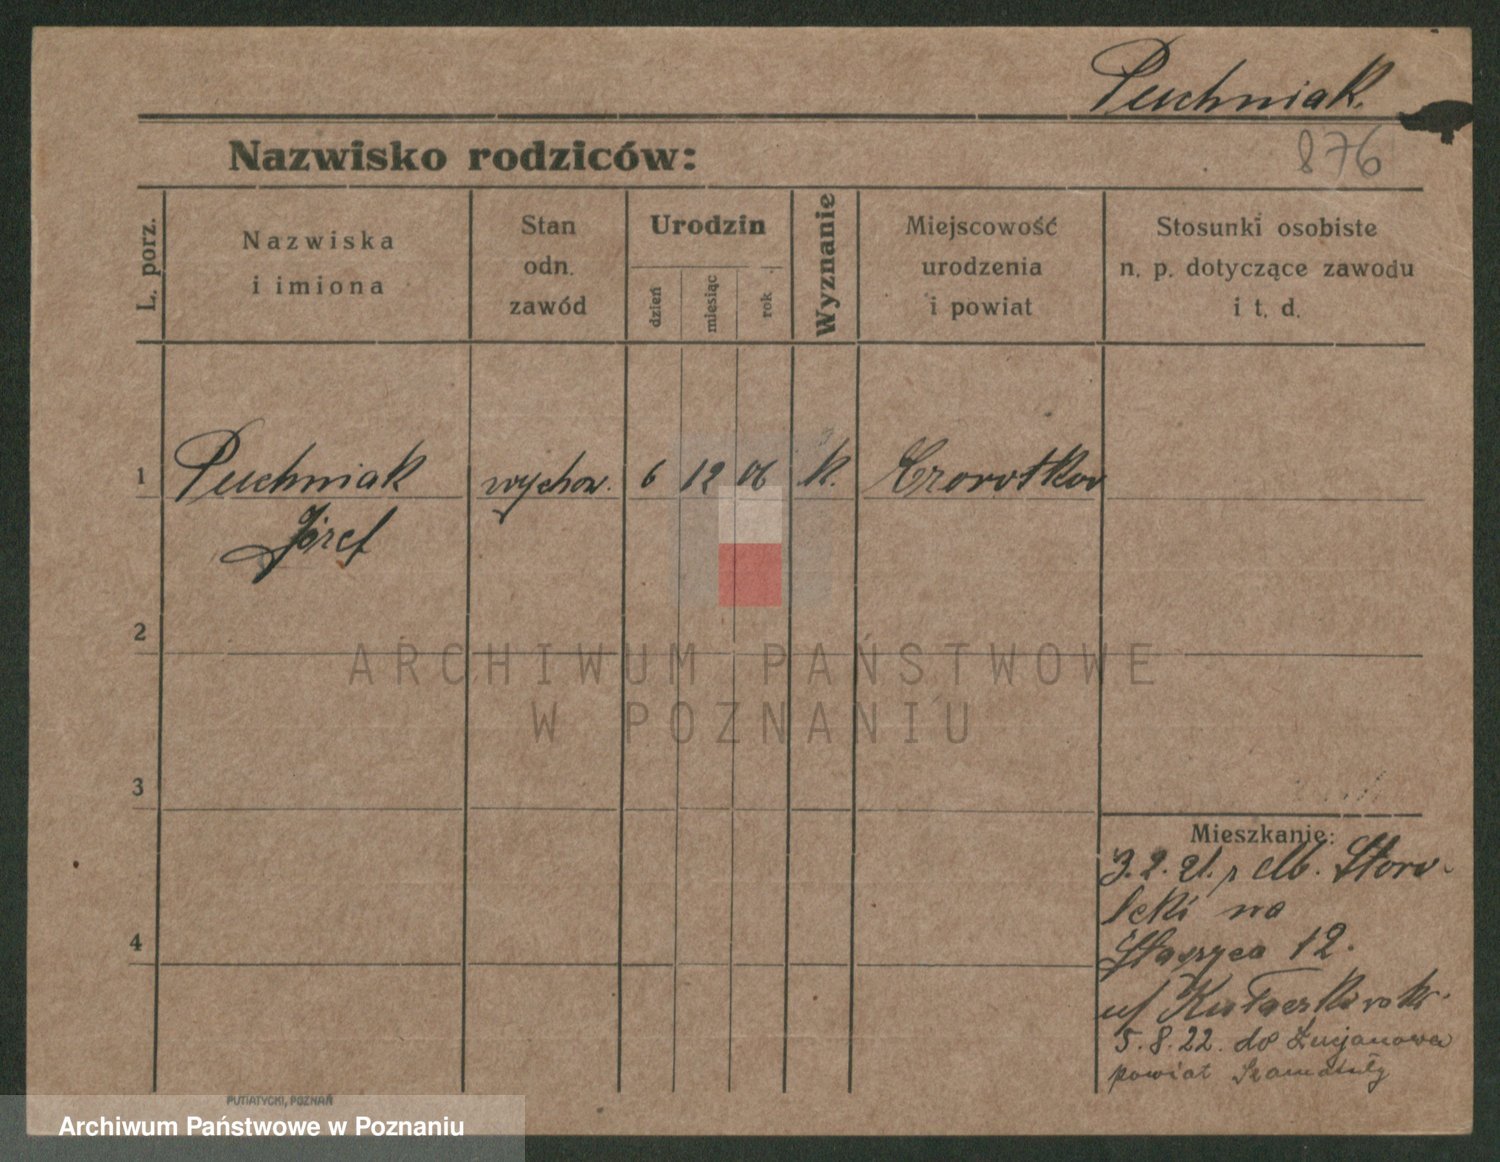 Puchniak
876
Nazwisko rodziców:
L. porz.
Nazwiska
i imiona
Stan
odn.
zawód
Urodzin
dzień
miesiąc
rok
Wyznanie
Miejscowość
urodzenia
i powiat
Stosunki osobiste
n. p. dotyczące zawodu
i t. d.
1
Puchniak wychow. 6 12 06 k.
Józef
2
ARCHIWUM PAŃSTWOWE
W POZNANIU
3
Mieszkanie:
3.2.21.
na
4
Staszyca 12.
5.8.22. do Lucjanowa
powiat Szamotuły
PUTIATYCKI, POZNAŃ
Archiwum Państwowe w Poznaniu